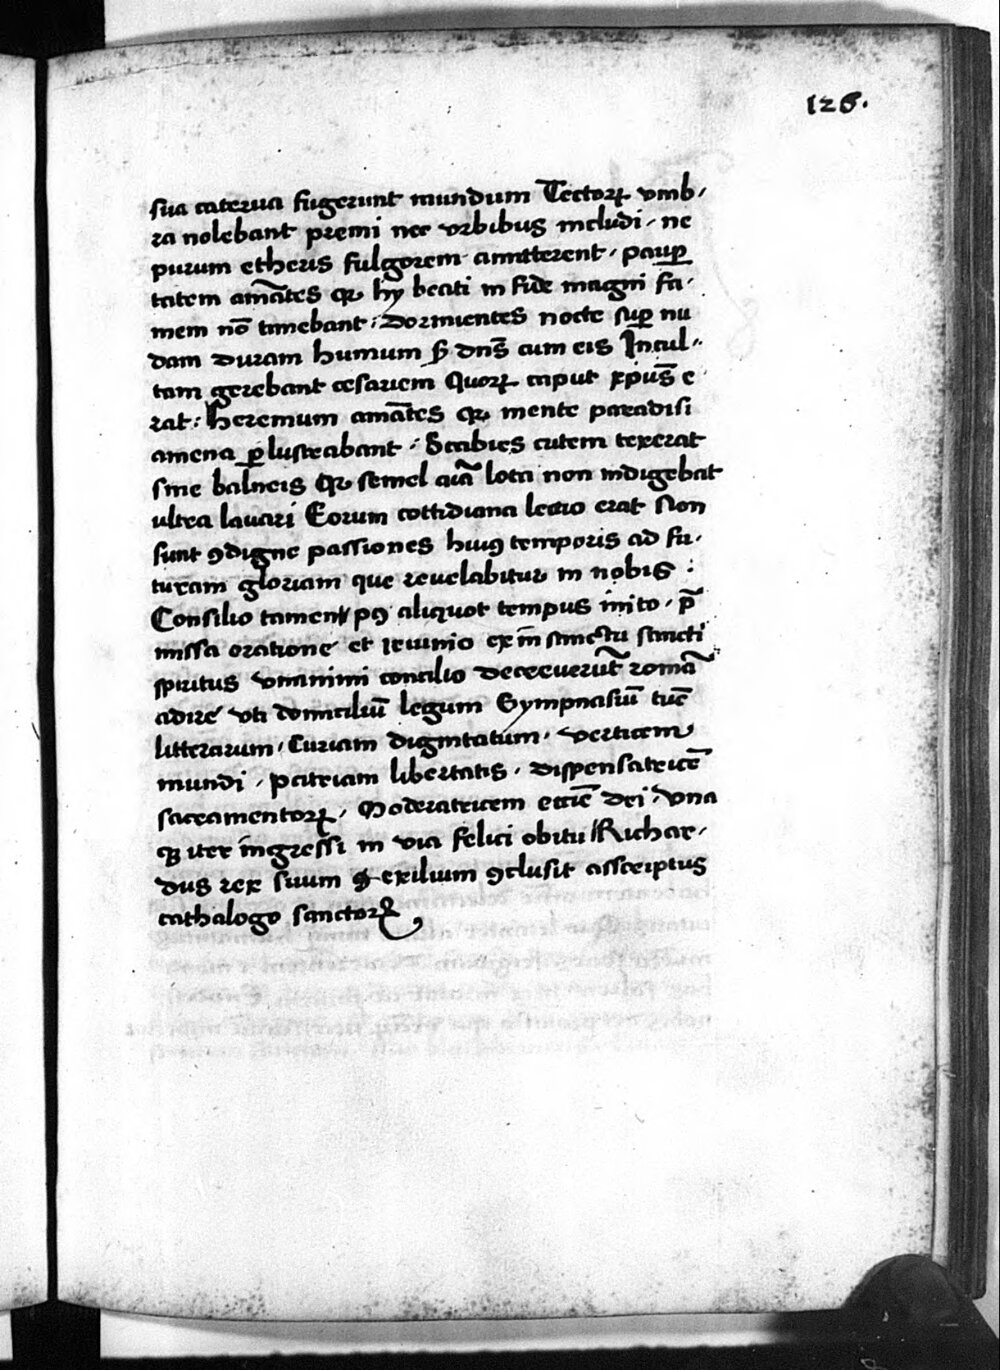 126.
sua caterua fugerunt mundum Tectorꝝ vmb/
ra nolebant premi nec vrbibus includi / ne
purum etheris fulgorem amitterent / pauꝑ
tatem amātes qꝛ hy beati in fide magni fa/
mem nō timebant : Dormientes nocte suꝑ nu
dam duram humum ß dn̄s cum eis Incul//
tam gerebant cesariem Quorꝝ caput xpūs e
rat : heremum amātes qꝛ mente paradisi
amena ꝑlustrabant : Scabies cutem texerat
sine balneis qꝛ semel aīa lota non indigebat
ultra lauari Eorum cottidiana lectio erat Non
sunt ꝯdigne passiones huiꝰ temporis ad fu/
turam gloriam que reuelabitur in nobis :
Consilio tamen pꝰ aliquot tempus inito / p̄
missa oratione et ieiunio ex īstinctu sancti
spiritus vnanimi concilio decreuerūt romā
adire vti domiciliū legum Gympnasiū tuē
litterarum / Curiam dignitatum / verticem
mundi / patriam libertatis / dispensatricē
sacramentorꝝ / Moderatricem eccīe dei / Vna
qꝫ iter ingressi in via felici obitu Richar/
dus rex suum ꝗ exilium ꝯclusit asscriptus
cathalogo sanctorꝝ